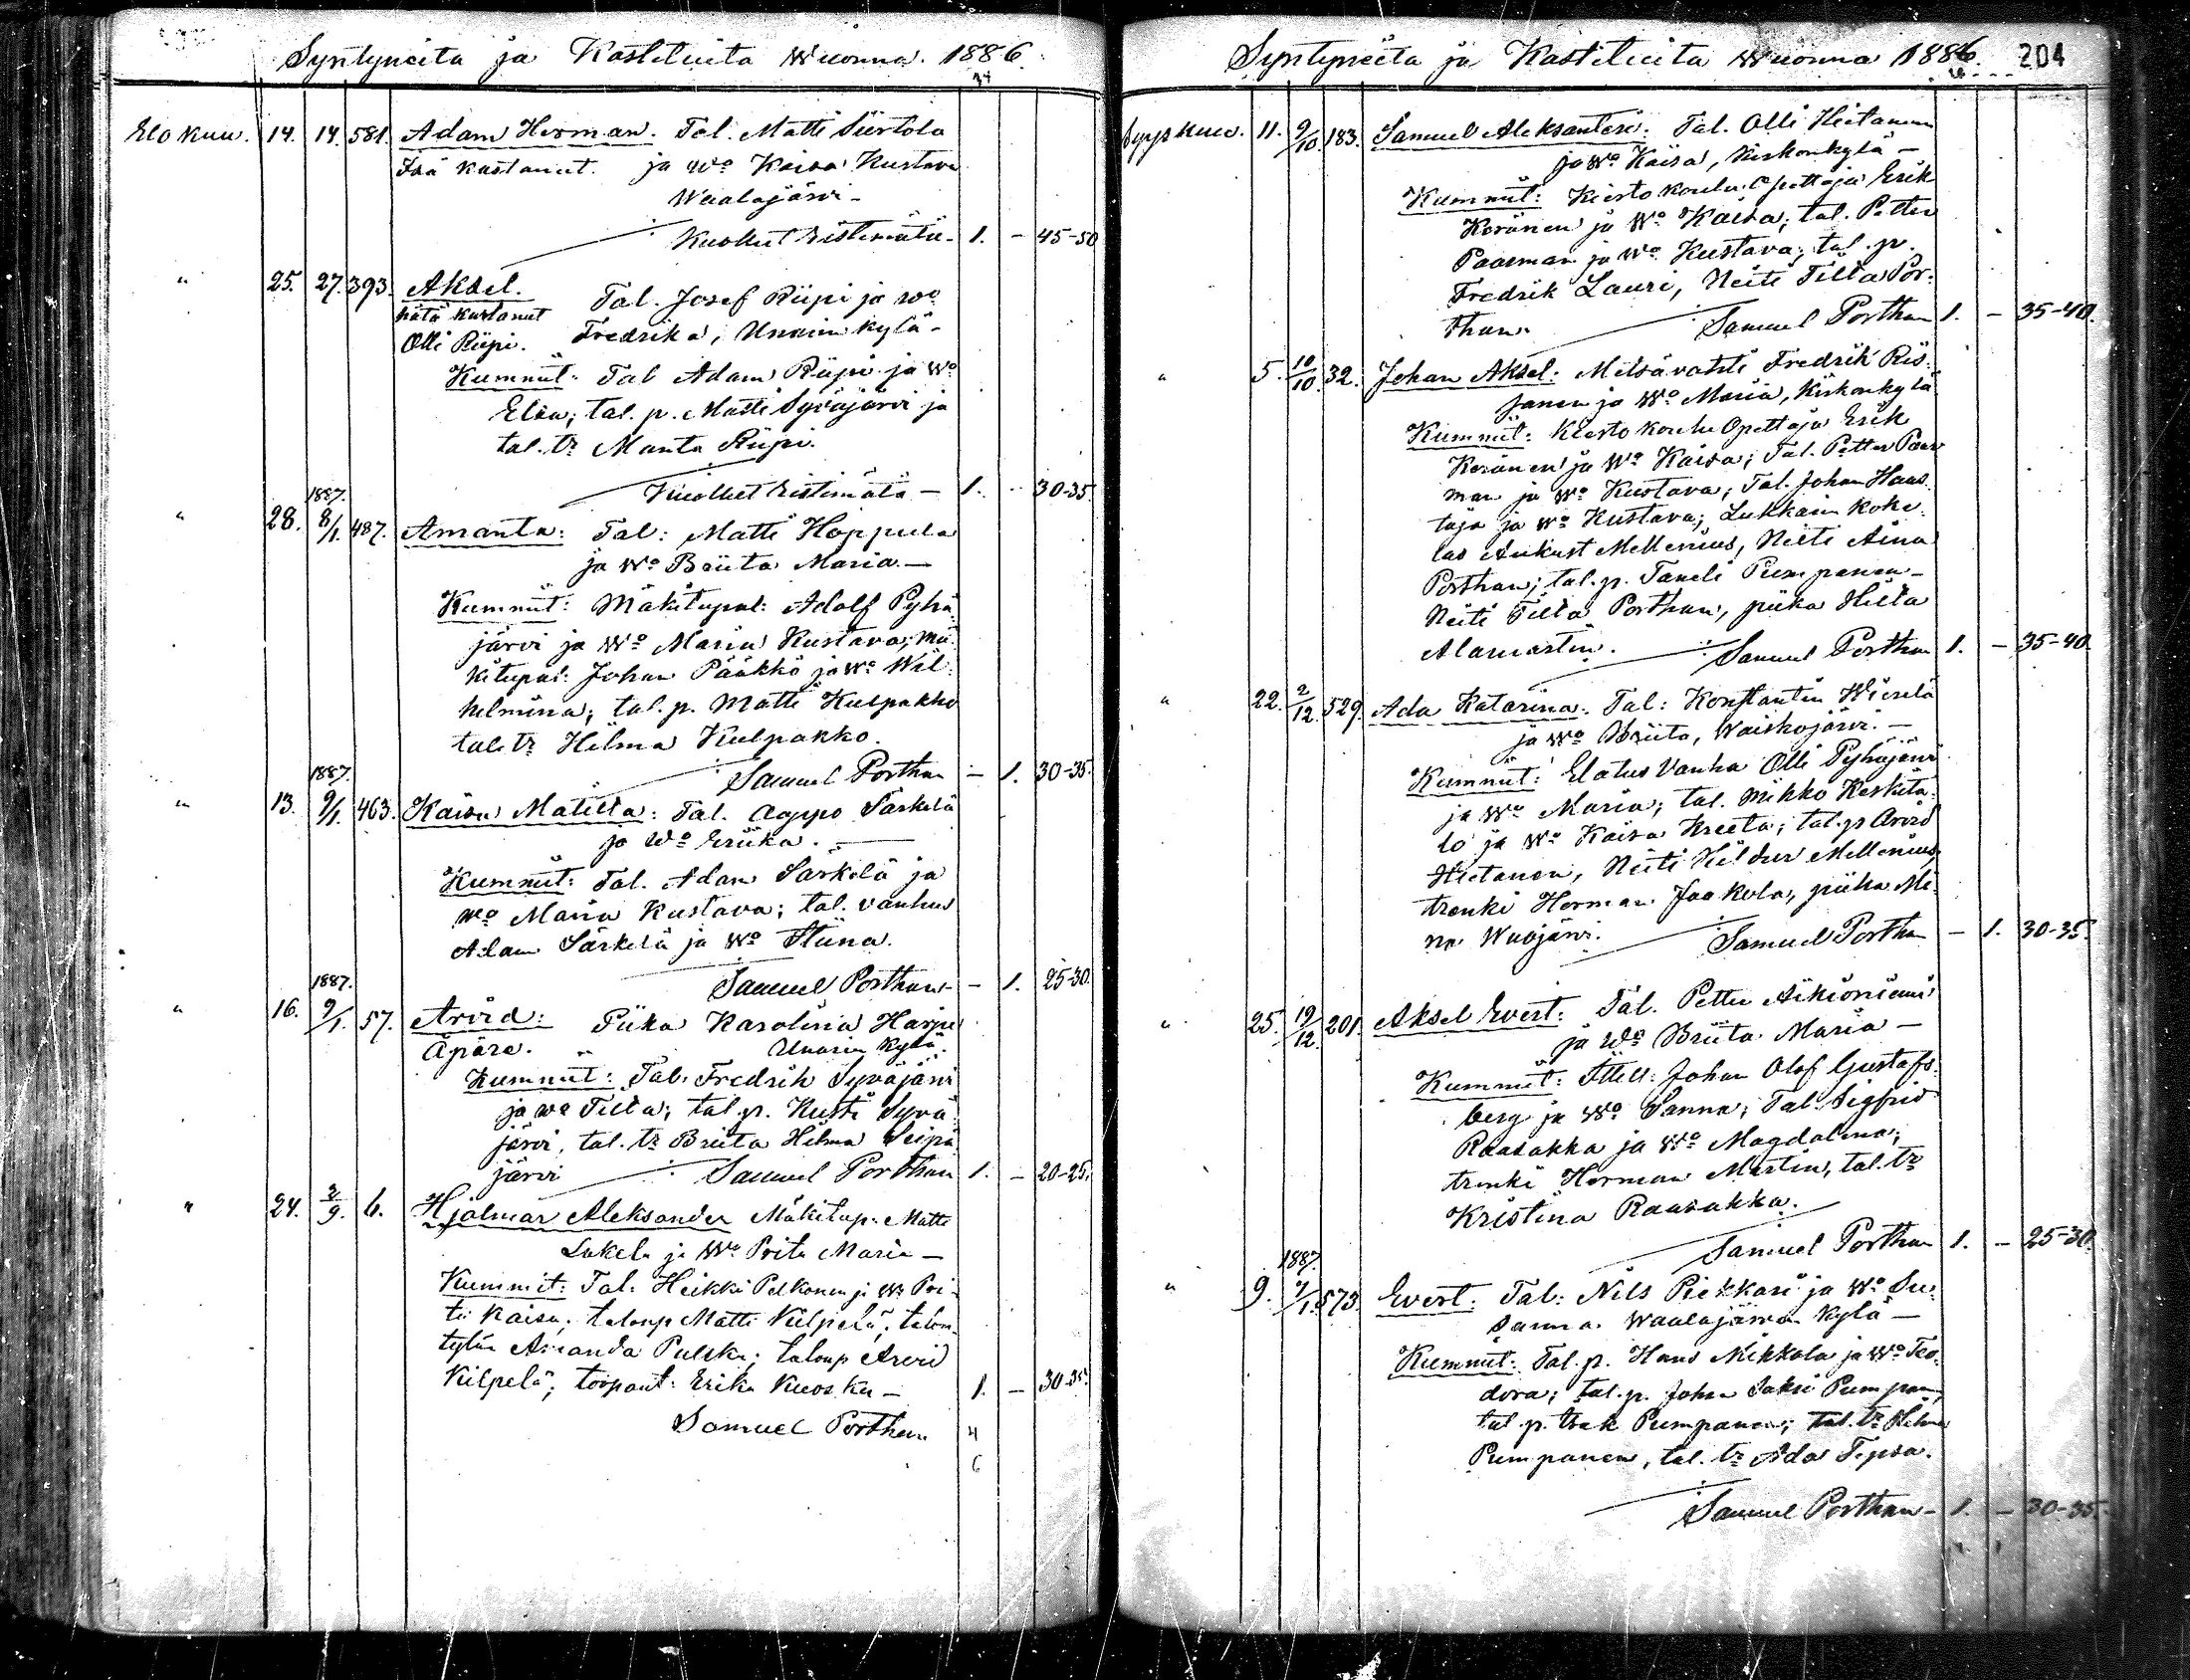 Syntyneita ja Kastetuita Wuonna 1886.
34
Elokuu. 14. 14. 581. Adam Herman. Tal. Matti Siirtola
Isä kastanut. ja Wo Kaisa Kustava
Waalajärvi -
Kuollut ristimätä - 1. - 45-50
" 25. 27. 393. Aksel. Tal. Josef Riipi ja wo
hätä kastanut Fredrika, Unarin kylä -
Olli Riipi.
Kummit: Tal Adam Riipi ja Wo
Elsa; tal. p. Matti Syväjärvi ja
tal. tr Manta Riipi.
Kuollut ristimätä - 1. - 30-35.
1887.
" 28. 8/1. 487. Amanta: Tal: Matti Hoppula
ja Wo Briita Maria. -
Kummit: Mäkitupal: Adolf Pyhä
järvi ja Wo Maria Kustava; mä
kitupal: Johan Pääkkö ja Wo Wil-
helmina; tal. p. Matti Kulpakko
tal. tr Hilma Kulpakko.
Samuel Porthan - 1. 30-35.
1887.
" 13. 9/1. 463. Kaisa Matilta: Tal. Aappo Särkelä
ja Wo Eriika. -
Kummit: Tal. Adam Särkelä ja
Wo Maria Kustava; tal. vanhus
Adam Särkelä ja Wo Stiina.
Samuel Porthan - - 1. 25-30.
1887.
" 16. 9/1. 57. Arvid: Piika Karolina Harju
Äpärä. " Unarin kylä.
Kummit: Tal: Fredrik Syväjärvi
ja wo Tilta; tal. p. Kusti Syvä
järvi, tal. tr Briita Hilma Seipä
järvi Samuel Porthan 1. - 20-25.
" 24. 2/9. 6. Hjalmar Aleksander Mäkitup: Matti
Lakela ja Wo Priita Maria -
Kummit: Tal: Heikki Pelkonen ja Wo Pri-
ta Kaisa; talonp Matti Kilpelä; talon
tytär Amanda Pulska; talonp Arvid
Kilpelä; torpant: Erika Kuosku - 1. - 30-35.
Samuel Porthan 4
6
Syntyneitä ja Kastetuita Wuonna 1886. 204
Syyskuu. 11. 9/10. 183. Samuel Aleksanteri: Tal. Olli Hietanen
ja Wo Kaisa, Kirkonkylä -
Kummit: Kiertokoulu opettaja Erik
Keränen ja Wo Kaisa; tal. Petter
Paarman ja Wo Kustava; tal. p.
Fredrik Lauri, Neiti Tilta Por-
than. Samuel Porthan 1. - 35-40.
" 5. 10/10. 32. Johan Aksel: Metsävahti Fredrik Ris-
sanen ja Wo Maria, Kirkonkylä
Kummit: Kiertokoulu Opettaja Erik
Keränen ja Wo Kaisa; Tal. Petter Paar
man ja Wo Kustava; Tal. Johan Haas
taja ja Wo Kustava; Lukkarin koke-
las Aukust Mellenius, Neiti Aina
Porthan; tal. p. Taneli Pumpanen -
Neiti Tilta Porthan, piika Hilta
Alamartin. Samuel Porthan 1. - 35-40.
" 22. 2/12. 529. Ada Katarina. Tal: Konstantin Wierelä
ja Wo Briita, Waiskojärvi. -
Kummit: Elatus Vanha Olli Pyhäjärvi
ja Wo Maria; tal. Mikko Keskita-
lo ja Wo Kaisa Kreeta; tal. p Arvid
Hietanen, Neiti Hildur Mellenius,
trenki Herman Jaakola, piika Mi-
na Waajärvi. Samuel Porthan - 1. 30-35.
" 25. 19/12. 201. Aksel Evert: Tal. Petter Aikioniemi
ja Wo Briita Maria -
Kummit: Johan Olof Gustafs-
berg ja Wo Sanna; Tal. Sigfrid
Raasakka ja Wo Magdalena;
trenki Herman Martin, tal. tr
Kristina Raasakka.
Samuel Porthan 1. - 25-30.
1887.
" 9. 9/1. 573. Evert: Tal: Nils Piekkari ja Wo Su-
sanna. Waalajärven kylä -
Kummit: Tal. p. Hans Mikkola ja Wo Teo-
dora; tal. p. Johan Saksi Pumpanen,
tal. p. Isak Pumpanen; tal. tr Hilma
Pumpanen, tal. tr Ada Tepsa.
Samuel Porthan - 1. - 30-35.